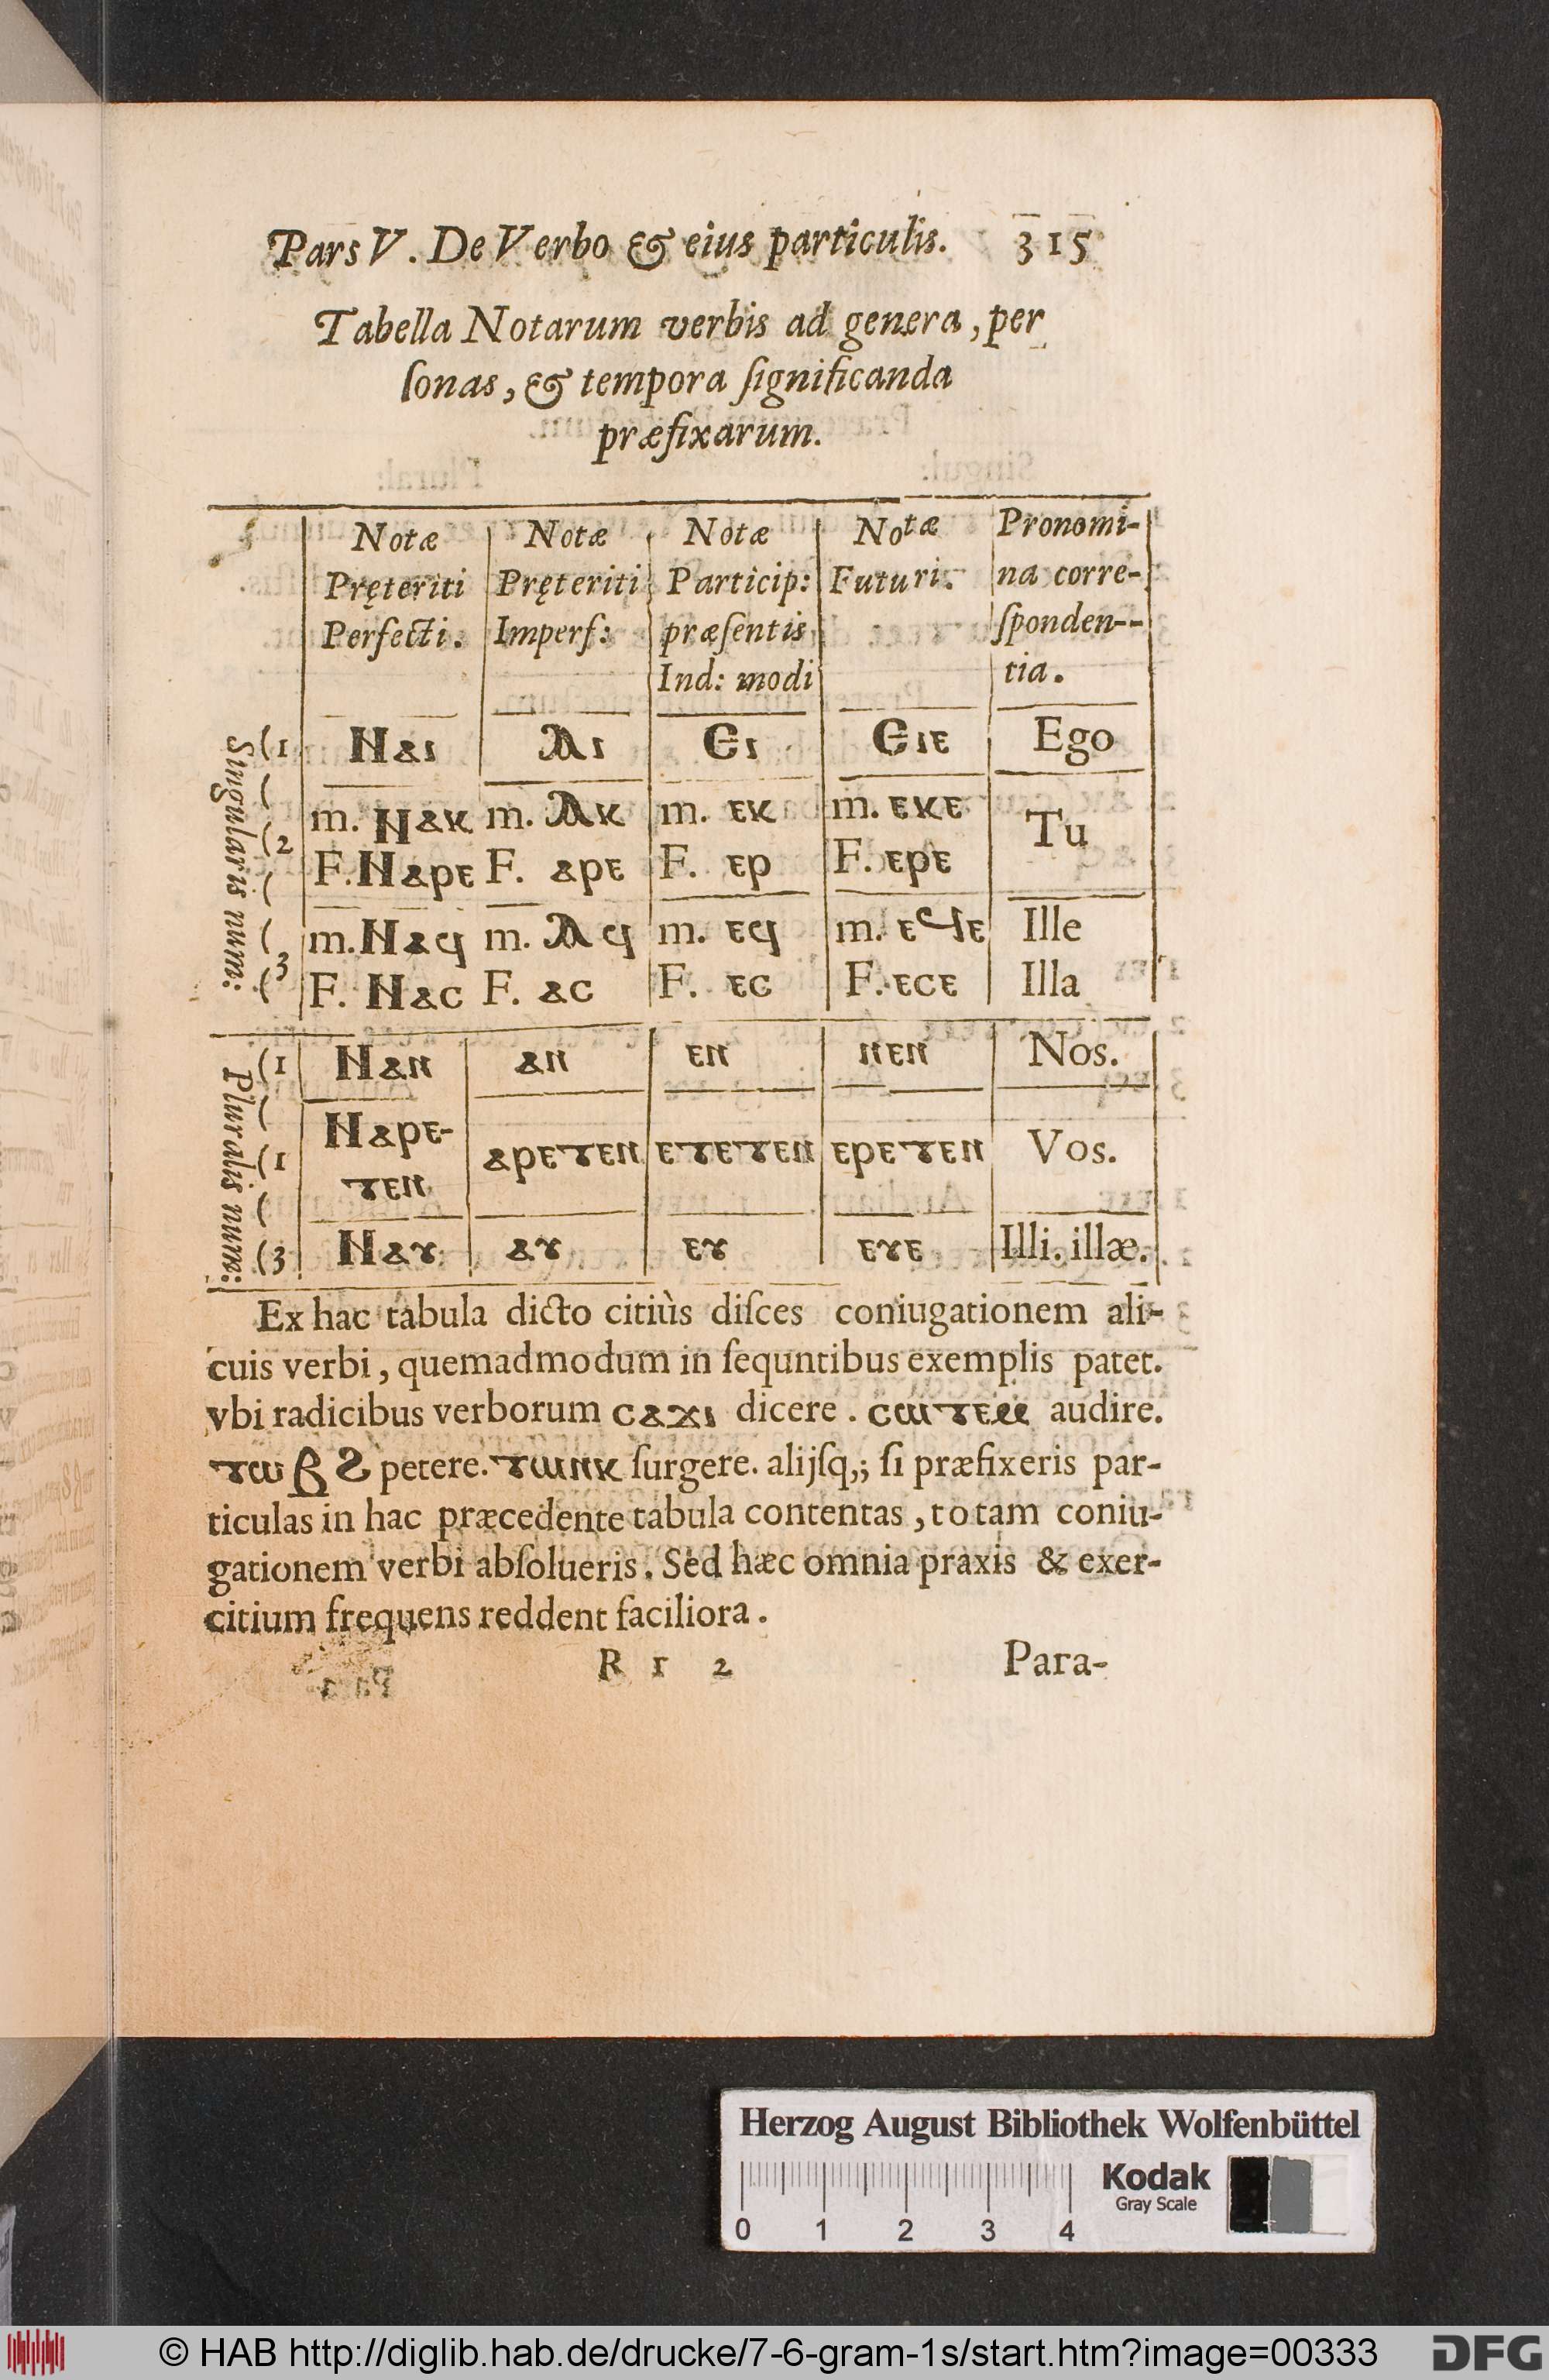 Pars V. De Verbo & eius particulis. 315
Tabella Notarum verbis ad genera, per
ſonas, & tempora ſignificanda
præfixarum.
Notæ Pręteriti Perfecti. | Notæ Pręteriti Imperf: | Notæ Particip: præſentis Ind: modi | Notæ Futuri. | Pronomi- na corre- ſponden-- tia.
Singularis num:
(1 Ⲛⲁⲓ Ⲁⲓ Ⲉⲓ Ⲉⲓⲉ Ego
(2 m. Ⲛⲁⲕ m. Ⲁⲕ m. ⲉⲕ m. ⲉⲕⲉ Tu
F. Ⲛⲁⲣⲉ F. ⲁⲣⲉ F. ⲉⲣ F. ⲉⲣⲉ
(3 m. Ⲛⲁϥ m. Ⲁϥ m. ⲉϥ m. ⲉϥⲉ Ille
F. Ⲛⲁⲥ F. ⲁⲥ F. ⲉⲥ F. ⲉⲥⲉ Illa
Pluralis num:
(1 Ⲛⲁⲛ ⲁⲛ ⲉⲛ ⲛⲉⲛ Nos.
(1 Ⲛⲁⲣⲉ- ⲧⲉⲛ ⲁⲣⲉⲧⲉⲛ ⲉⲧⲉⲧⲉⲛ ⲉⲣⲉⲧⲉⲛ Vos.
(3 Ⲛⲁⲩ ⲁⲩ ⲉⲩ ⲉⲩⲉ Illi. illæ.
Ex hac tabula dicto citiùs diſces coniugationem ali-
cuis verbi, quemadmodum in ſequntibus exemplis patet.
vbi radicibus verborum ⲥⲁϫⲓ dicere. ⲥⲱⲧⲉⲙ audire.
ⲧⲱⲃϩ petere. ⲧⲱⲛⲕ ſurgere. alijſq,; ſi præfixeris par-
ticulas in hac præcedente tabula contentas, totam coniu-
gationem verbi abſolueris. Sed hæc omnia praxis & exer-
citium frequens reddent faciliora.
R r 2 Para-
Herzog August Bibliothek Wolfenbüttel
Kodak
Gray Scale
0 1 2 3 4
© HAB http://diglib.hab.de/drucke/7-6-gram-1s/start.htm?image=00333 DFG